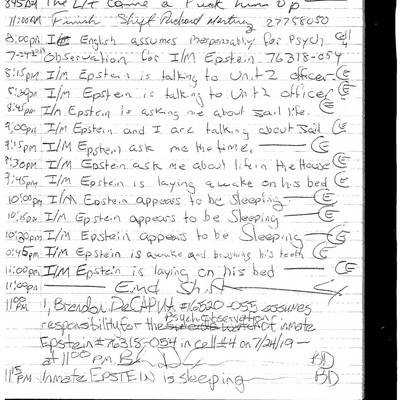 8:45AM The L/T came & Puck him Up
11:00AM Finish Shift Richard 27758050
8:00pm I/M English assumes Responsability for Psych Cell 4
7-24-19 Observation for I/M Epstein 76318-054
8:15pm I/M Epstein is talking to Unit 2 officer — CE
8:30pm I/M Epstein is talking to Unit 2 officer CE
8:45pm I/m Epstein is asking me about Jail life. CE
9:00pm I/m Epstein and I are talking about Jail CE
9:15pm I/M Epstein ask me the time. — CE
9:30pm I/M Epstein ask me about life in the House CE
9:45pm I/m Epstein is laying awake on his bed CE
10:00pm I/M Epstein appears to be Sleeping — CE
10:15pm I/m Epstein appears to be Sleeping — CE
10:30pm I/M Epstein appears to be Sleeping — CE
10:45pm I/M Epstein is awake and brushing his teeth CE
11:00pm I/M Epstein is laying on his bed — CE
11:00pm — End Shift —
11:00 PM I, Brendan DeCAPUA #16520-055 assumes
Psych Observation
responsibility for the of inmate
Epstein #76318-054 in cell #4 on 7/24/19 —
at 11:00 P.M. BD
11:15 PM Inmate EPSTEIN is sleeping — BD